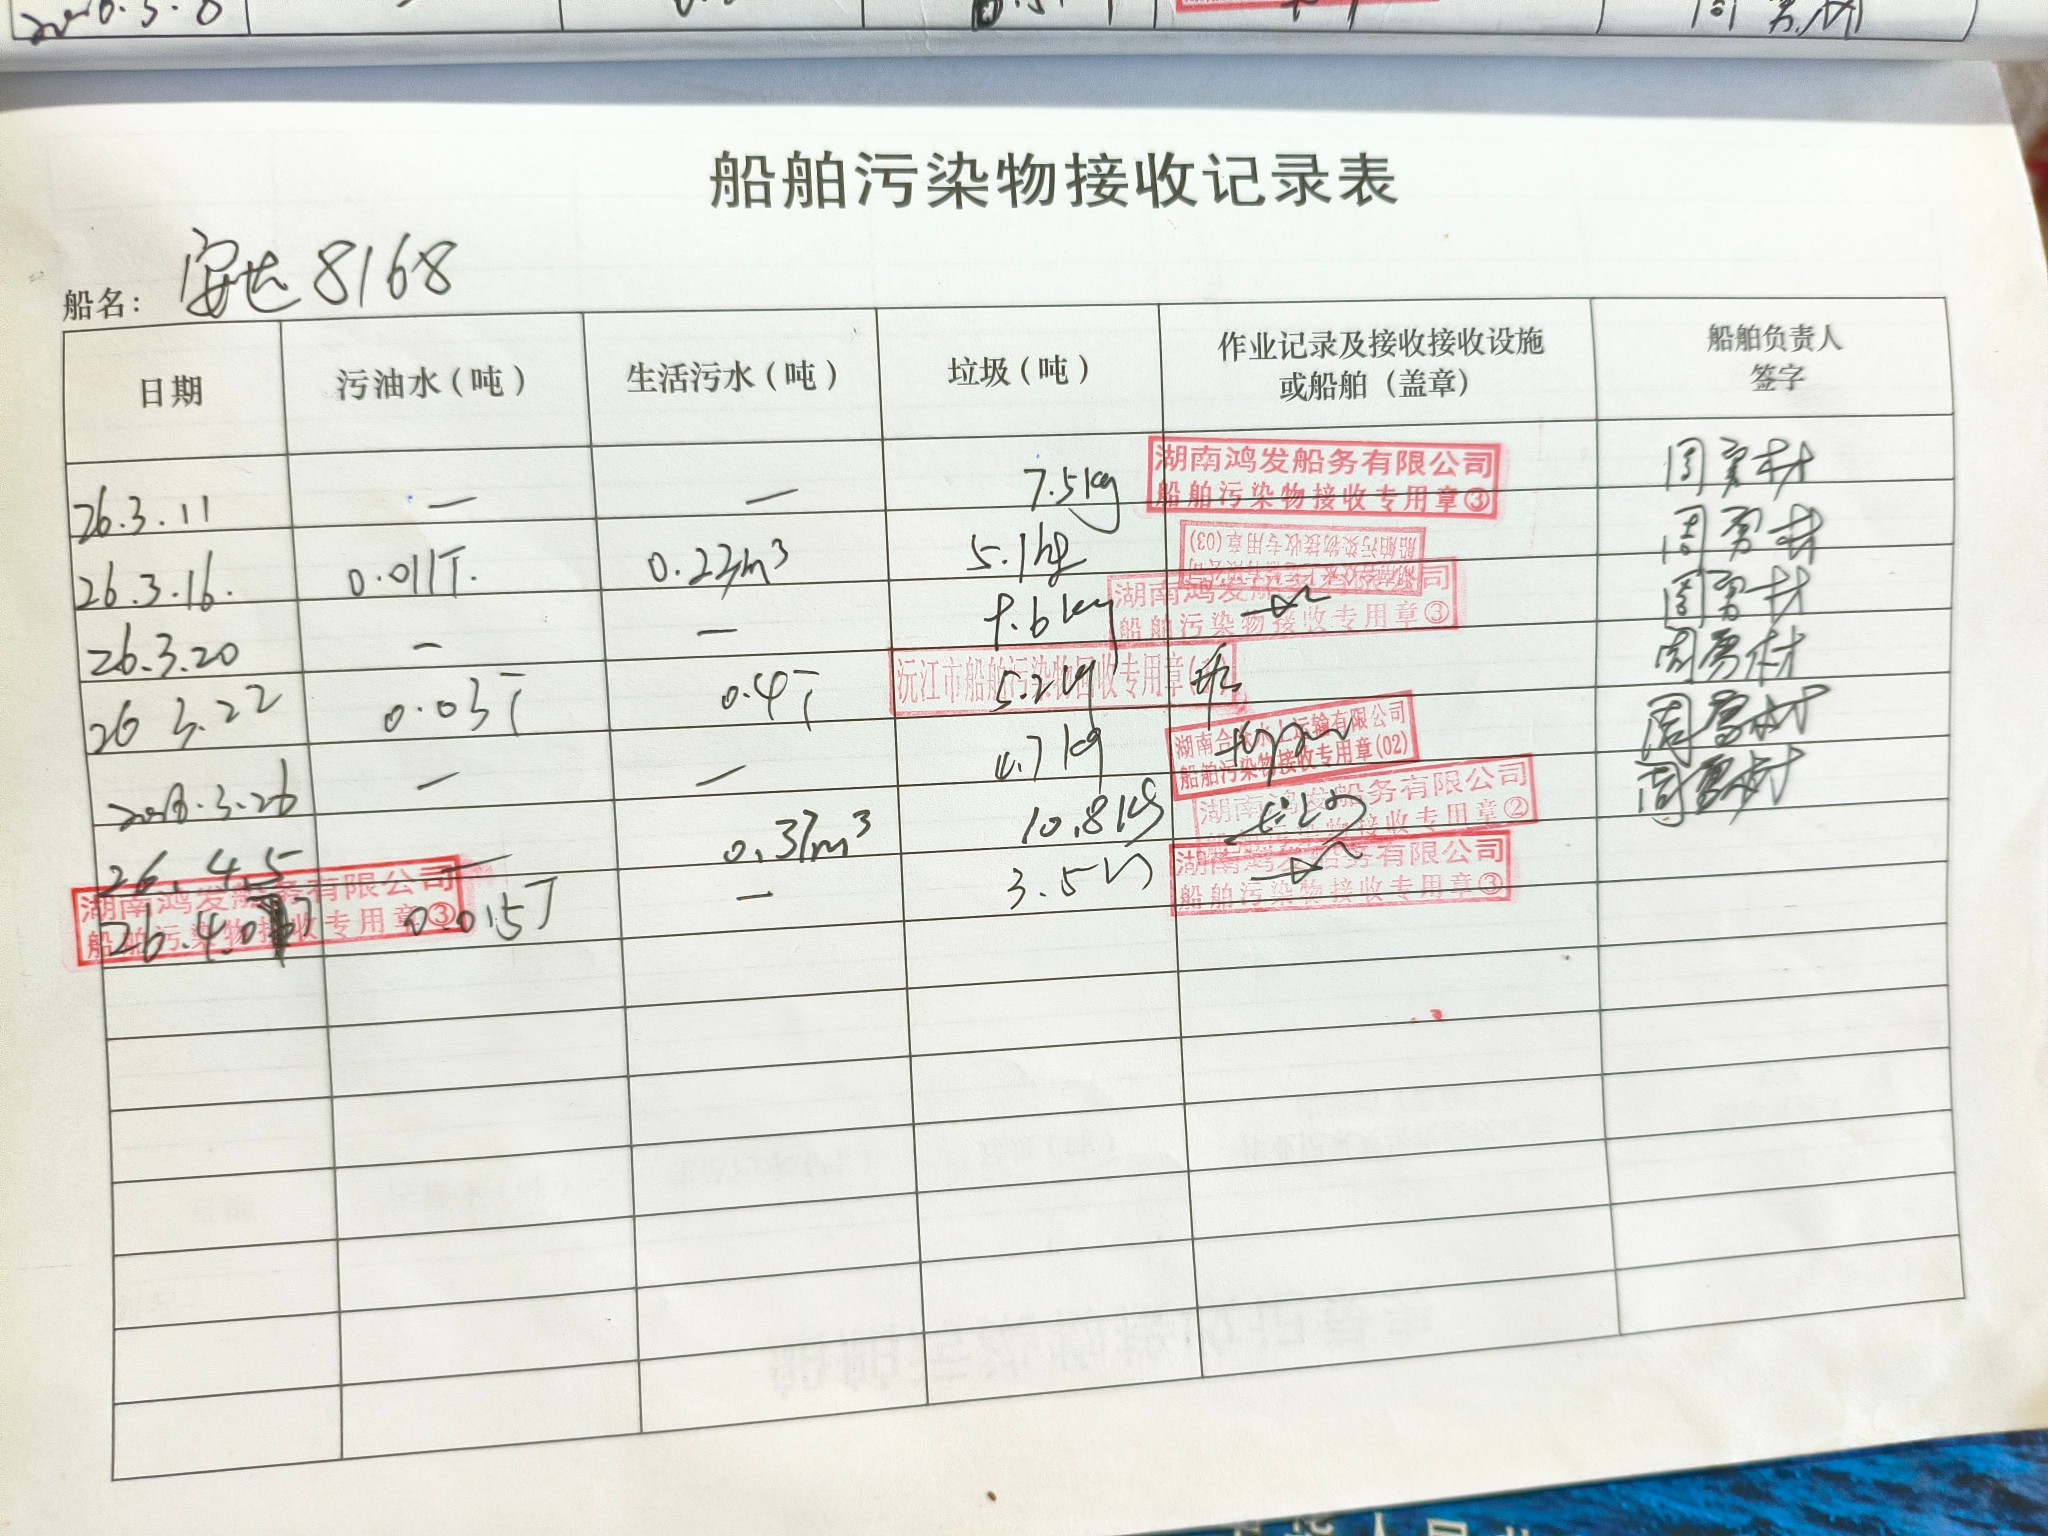 船舶污染物接收记录表
船名： 安达8168
日期 污油水（吨） 生活污水（吨） 垃圾（吨） 作业记录及接收接收设施或船舶（盖章） 船舶负责人签字
26.3.11 — — 7.5kg 湖南鸿发船务有限公司 船舶污染物接收专用章③ 周勇材
26.3.16. 0.011T. 0.22m³ 5.1kg 船舶污染物接收专用章(03) 周勇材
26.3.20 — — 9.6kg 湖南鸿发船务有限公司 船舶污染物接收专用章③ 周勇材
26 3.22 0.03T 0.4T 5.2kg 沅江市船舶污染物回收专用章 周勇材
2026.3.26 — — 4.7kg 湖南合林水上运输有限公司 船舶污染物接收专用章(02) 周勇材
26.4.5 — 0.37m³ 10.8KG 湖南鸿发船务有限公司 船舶污染物接收专用章② 周勇材
26.4.07 0.015T — 3.5 湖南鸿发船务有限公司 船舶污染物接收专用章③
湖南鸿发船务有限公司 船舶污染物接收专用章③